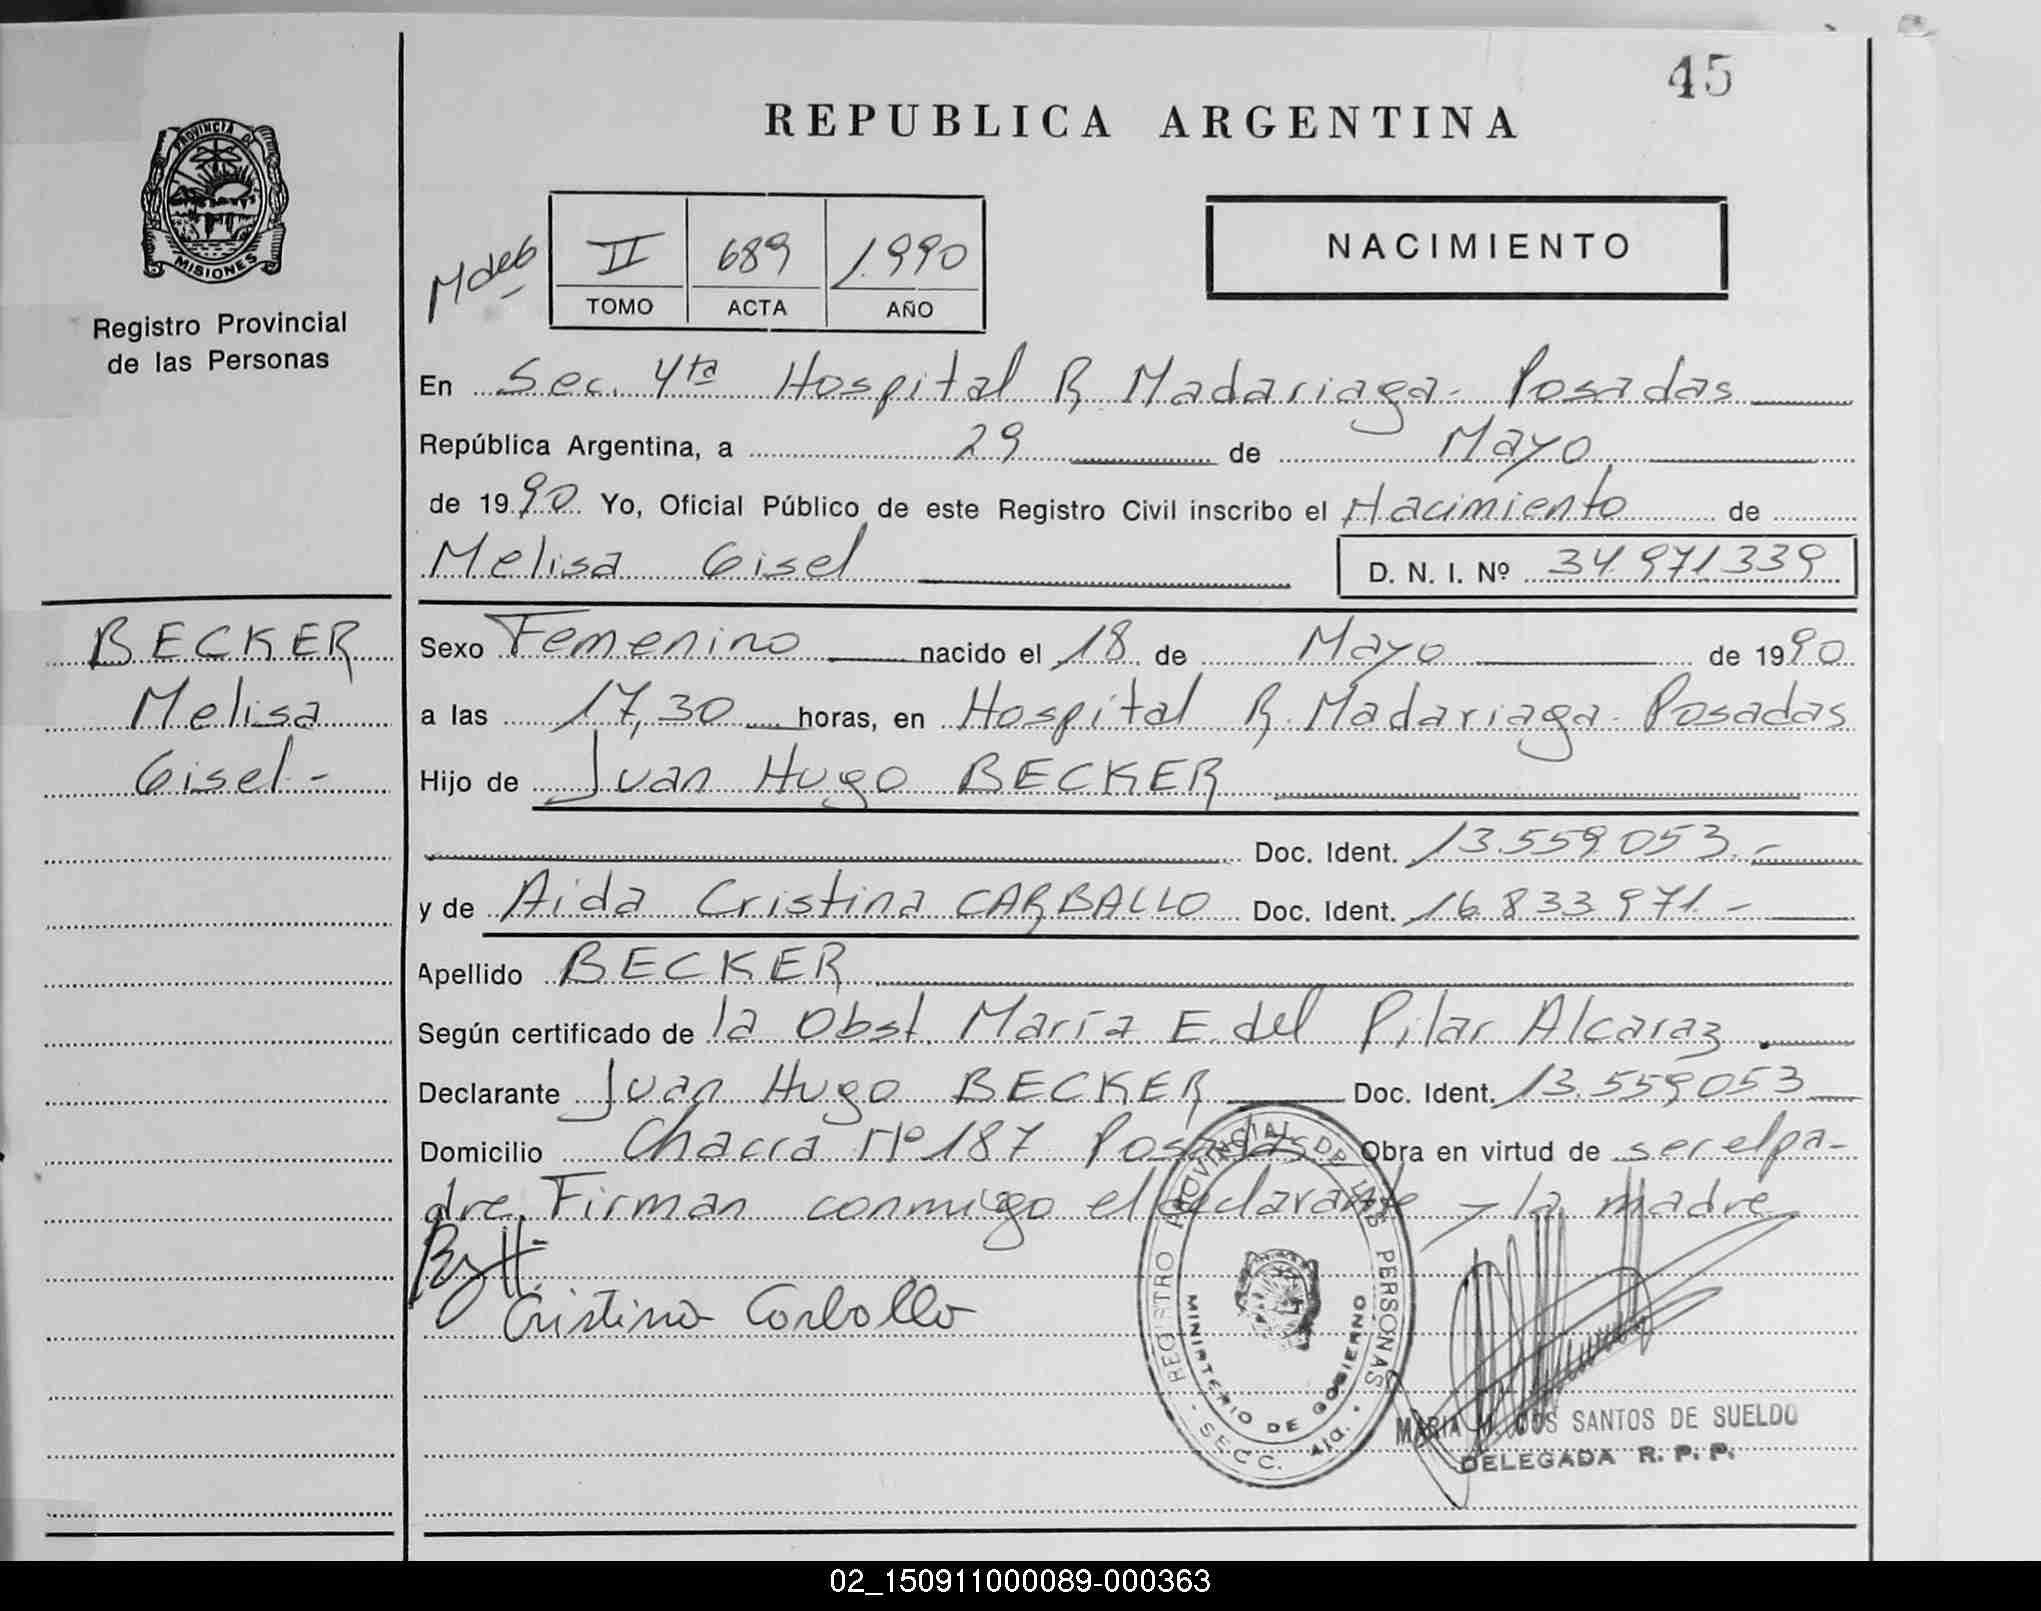 45
REPUBLICA ARGENTINA
PROVINCIA DE
MISIONES
Registro Provincial
de las Personas
II 689 1990
TOMO ACTA AÑO
NACIMIENTO
En Sec. 4ta Hospital R. Madariaga- Posadas
República Argentina, a 29 de Mayo
de 1990 Yo, Oficial Público de este Registro Civil inscribo el Nacimiento de
Melisa Gisel D. N. I. Nº 34.971.339
BECKER
Melisa
Gisel-
Sexo Femenino nacido el 18 de Mayo de 1990
a las 17,30 horas, en Hospital R. Madariaga- Posadas
Hijo de Juan Hugo BECKER
Doc. Ident. 13.559.053.-
y de Aida Cristina CARBALLO Doc. Ident. 16.833.971.-
Apellido BECKER
Según certificado de la Obst. María E. del Pilar Alcaraz.
Declarante Juan Hugo BECKER Doc. Ident. 13.559.053
Domicilio Chacra Nº 187 Posadas Obra en virtud de ser el pa-
dre. Firman conmigo el declarante y la madre
Cristina Carballo
REGISTRO PROVINCIAL DE LAS PERSONAS
MINISTERIO DE GOBIERNO
- SECC. 4ta. -
MARIA DOS SANTOS DE SUELDO
DELEGADA R. P. P.
02_150911000089-000363